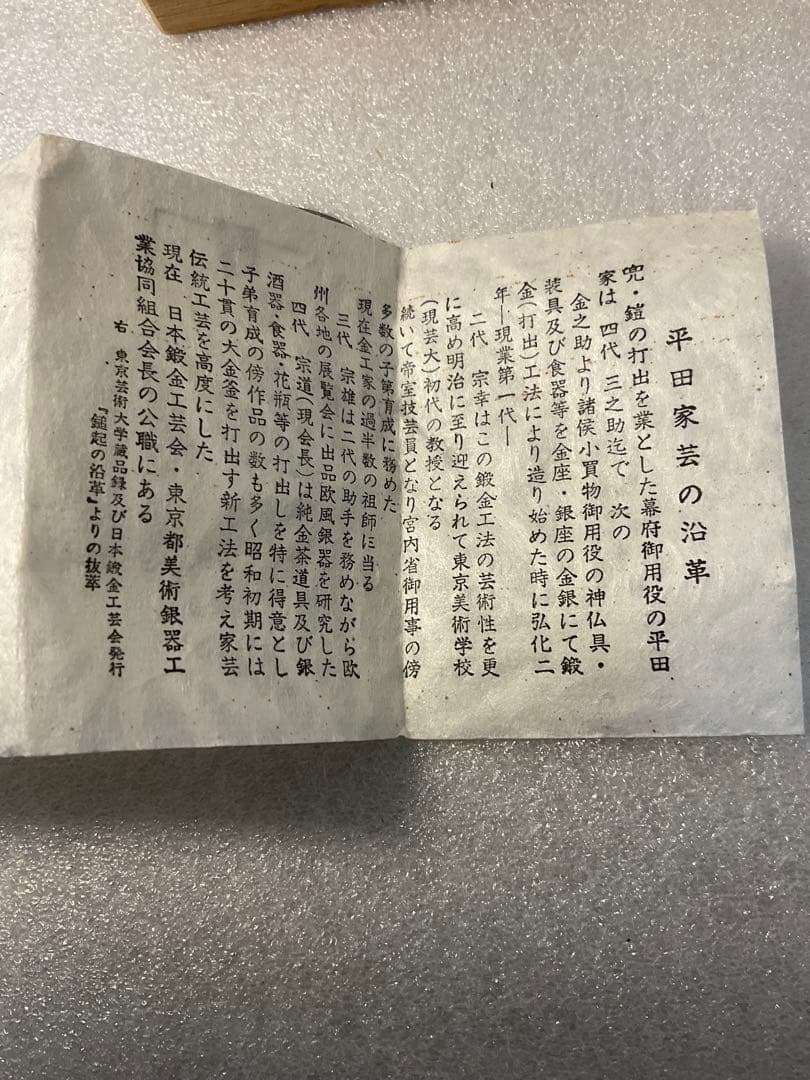 平田家芸の沿革
兜・鎧の打出を業とした幕府御用役の平田
家は 四代 三之助迄で 次の
金之助より諸侯小買物御用役の神仏具・
装具及び食器等を金座・銀座の金銀にて鍛
金(打出)工法により造り始めた時に弘化二
年―現業第一代―
二代 宗幸はこの鍛金工法の芸術性を更
に高め明治に至り迎えられて東京美術学校
(現芸大)初代の教授となる
続いて帝室技芸員となり宮内省御用事の傍
多数の子弟育成に務めた
現在金工家の過半数の祖師に当る
三代 宗雄は二代の助手を務めながら欧
州各地の展覧会に出品欧風銀器を研究した
四代 宗道(現会長)は純金茶道具及び銀
酒器・食器・花瓶等の打出しを特に得意とし
子弟育成の傍作品の数も多く昭和初期には
二十貫の大金釜を打出す新工法を考え家芸
伝統工芸を高度にした
現在 日本鍛金工芸会・東京都美術銀器工
業協同組合会長の公職にある
右 東京芸術大学蔵品録及び日本鍛金工芸会発行
『鎚起の沿革』よりの抜萃